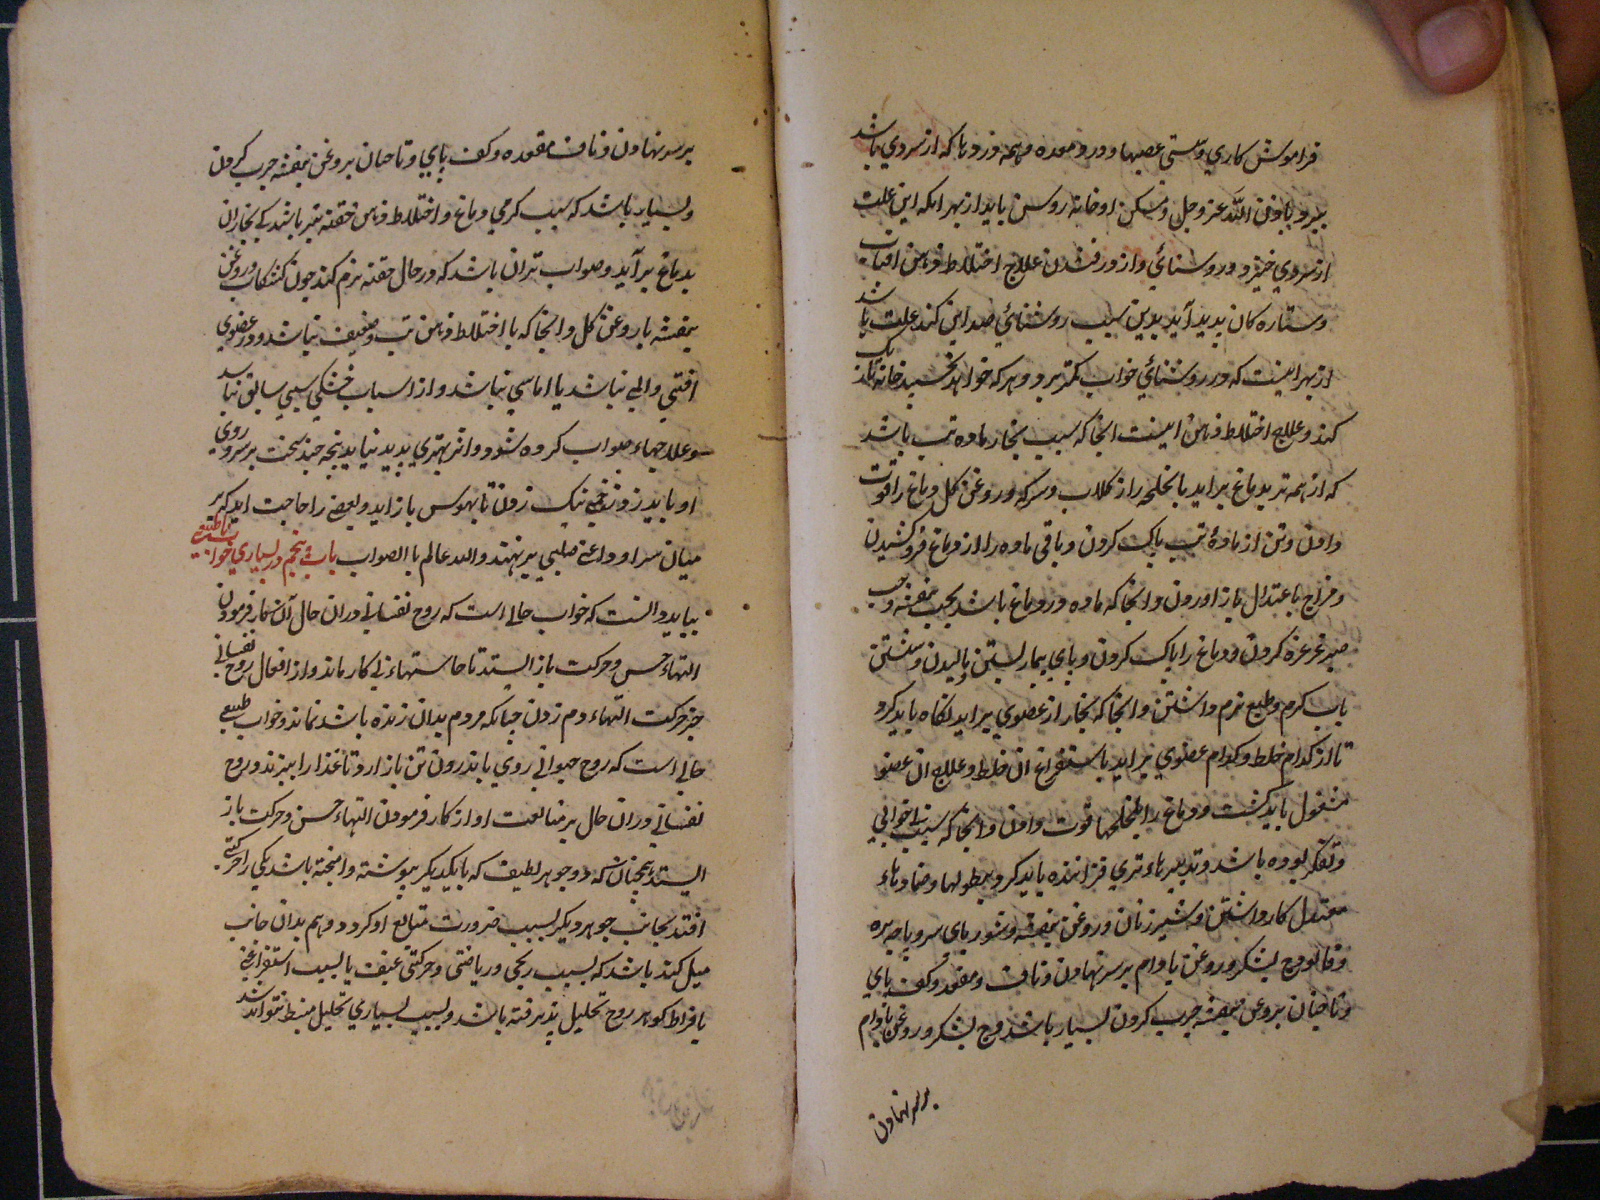 فراموش کاري و سستي عصبها و درد معده و همه دردها که از سردي باشد
ببرد باذن الله عز و جل و مسکن او خانه روشن باید از بهر آنکه این علت
از سردي خیزد و روشنائي و از دور شدن علاج اختلاط ذهن آفتاب
و ستاره کان پدید آید بدین سبب روشنائي ضد این کند علت باشد
از بهر اینست که در روشنائي خواب کمتر برد و هر که خواهد بخسبد خانه تاریک
کند و علاج اختلاط ذهن اینست آنجا که سبب بخار ماده تب باشد
که از همه تن بدماغ براید با لخلخه از گلاب و سرکه و روغن گل دماغ را قوت
دادن و تن از ماده تب پاک کردن و باقي ماده را از دماغ فرو کشیدن
و مزاج باعتدال باز اوردن و انجا که ماده در دماغ باشد بحب بنفشه و حب
صبر غرغره کردن و دماغ را پاک کردن و پاي بیمار بستن و مالیدن و شستن
باب کرم و طبع نرم داشتن و انجا که بخار از عضوي براید نگاه باید کرد
تا از کدام خلط و کدام عضوي براید باستفراغ ان خلط و علاج ان عضو
مشغول باید گشت و دماغ را بلخلخها قوت دادن و انجا که سبب بیخوابي
و تفکر بوده باشد و تدبیرهاء تري فزاینده باید کرد و بطولها و ضمادهاء
معتدل کار داشتن و شیر زنان و روغن بنفشه و شورباي سر و پاچه بره
و فالوذج بشکر و روغن بادام بر سر نهادن و ناف و مقعد و کف پاي
و ناخنان بروغن بنفشه چرب کردن بسیار باشد وج بشکر و روغن بادام
بر سر نهادن
بر سر نهادن و ناف مقعده و کف پاي و ناخنان بروغن بنفشه چرب کردن
و بسیار باشد که سبب کرمي دماغ و اختلاط ذهن حقنه تیز باشد که بخار ان
بدماغ بر آید و صواب تر ان باشد که در حال حقنه نرم کند چون کشکاب و روغن
بنفشه با روغن گل و انجا که با اختلاط ذهن تب و ضعیف نباشد و در عضوي
افتي و المي نباشد یا اماسي نباشد و از اسباب خشکي سببي سابق نباشد
و علاجهاء صواب کرده شود و اثر بهتري پدید نیاید پنجه چند سخت بر سر و روي
او باید زد و توبخي نیک زدن تا بهوش باز اید و بعضي را حاجت اید که بر
میان سر او داغي صلیبي بر نهند والله عالم بالصواب باب پنجم در بسیاري خواب ناطبیعي
بباید دانست که خواب حالي است که روح نفساني در ان حال از کار فرمودن
التهاء حس و حرکت باز ایستد تا حاستهاء بي کار ماند و از افعال روح نفساني
جز حرکت التهاء دم زدن چنانکه مردم بدان زنده باشد نماند و خواب طبیعي
حالي است که روح حیواني روي باندرون تن باز ارد تا غذا را بپزند و روح
نفساني در ان حال بر متابعت او از کار فرمودن التهاء حس و حرکت باز
ایستد همچنانکه دو جوهر لطیف که بایکدیکر پیوسته و امیخته باشد یکي را حرکتي
افتد بجانب جوهر دیکر بسبب ضرورت متابع او کردد و هم بدان جانب
میل کند باشد که بسبب رنجي و ریاضتي و حرکتي عنیف یا بسبب استفراغي
بافراط گوهر روح تحلیل پذیرفته باشد و بسبب بسیاري تحلیل منبسط نتواند شد